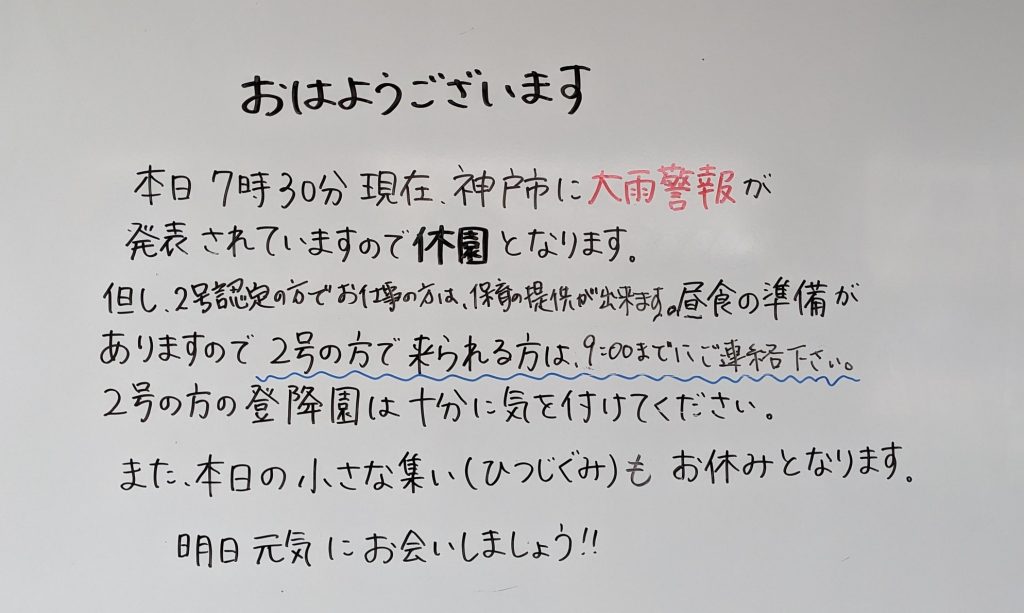 おはようございます
本日7時30分現在、神戸市に大雨警報が
発表されていますので休園となります。
但し、2号認定の方でお仕事の方は、保育の提供が出来ます。昼食の準備が
ありますので2号の方で来られる方は、9:00までにご連絡下さい。
2号の方の登降園は十分に気を付けてください。
また、本日の小さな集い(ひつじぐみ)も お休みとなります。
明日元気にお会いしましょう!!